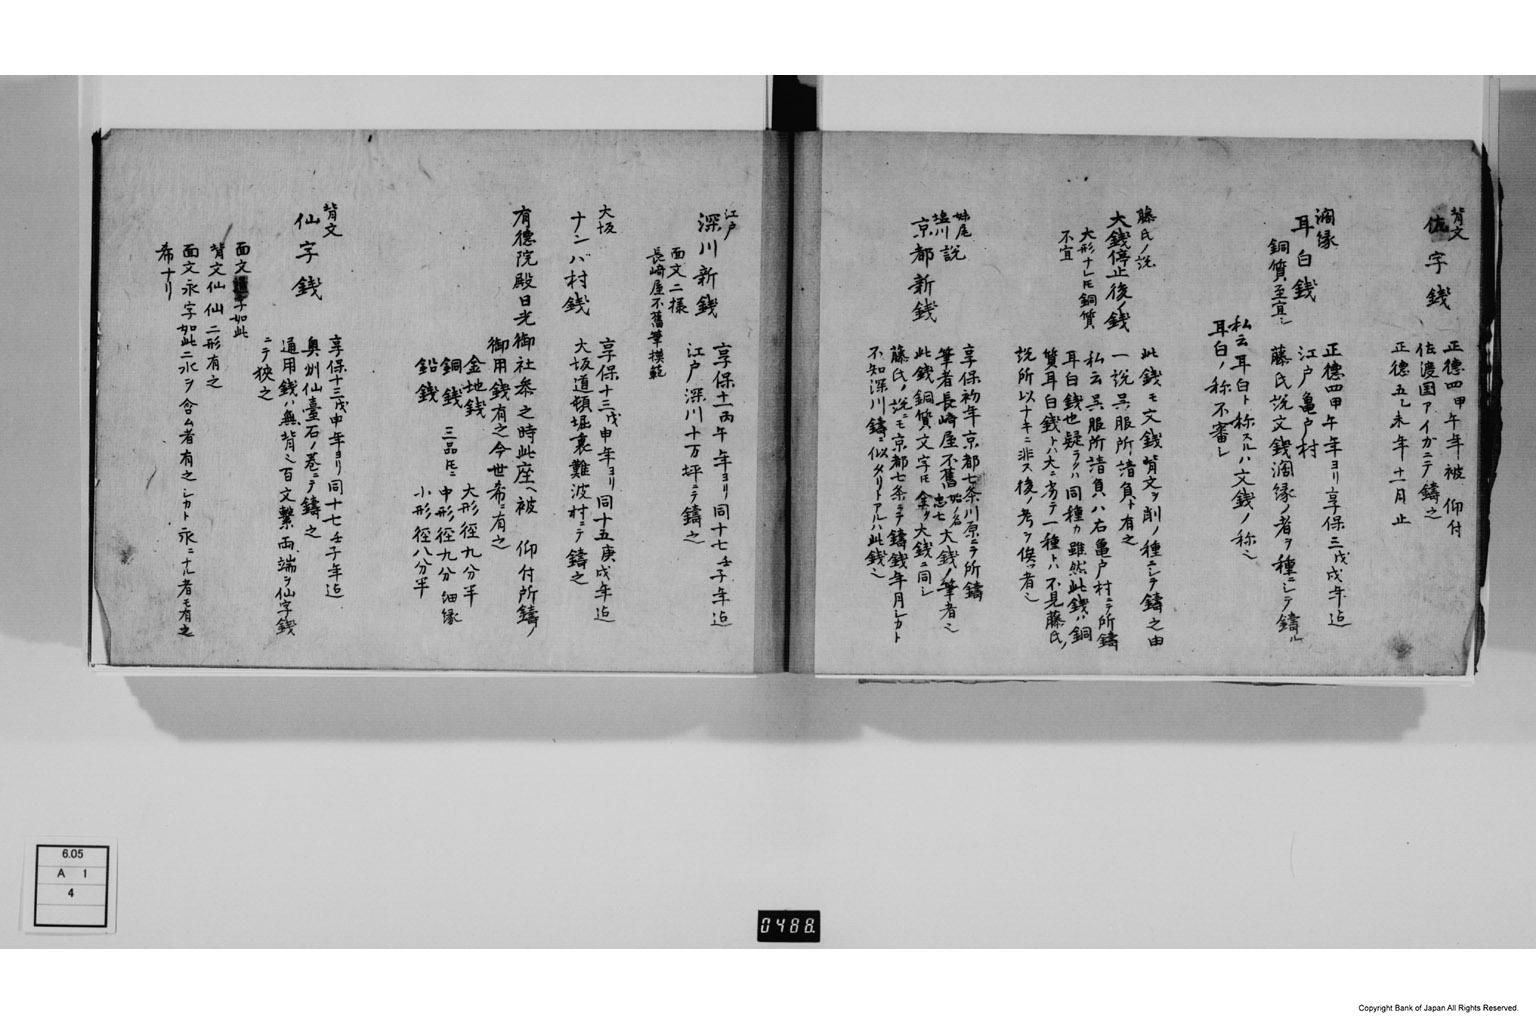 背文
佐字銭
正徳四甲午年被 仰付
佐渡国アイガニテ鋳之
正徳五乙未年十二月止
濶縁
耳白銭
銅質至宜シ
正徳四甲午年ヨリ享保三戊戌年迄
江戸亀戸村
藤氏説文銭濶縁ノ者ヲ種ニシテ鋳ル
私云耳白ト称スルハ文銭ノ称也
耳白ノ称不審シ
藤氏ノ説
大銭停止後ノ銭
大形ナレ𪜈銅質
不宜
此銭モ文銭背文ヲ削ノ種ニシテ鋳之由
一説呉服所請負ト有之
私云呉服所請負ハ右亀戸村ニテ所鋳
耳白銭也疑ラクハ同種カ雖然此銭ハ銅
質耳白銭トハ大ニ劣テ一種トハ不見藤氏ノ
説所以ナキニ非ス後ノ考ヲ俟者也
姉尾
塩川説
京都新銭
享保初年京都七条川原ニテ所鋳
筆者長崎屋不舊始ノ名忠七大銭ノ筆者也
此銭銅質文字𪜈全ク大銭ニ同シ
藤氏ノ説ニモ京都七条ニテ鋳銭年月シカト
不知深川鋳ニ似タリトアルハ此銭也
江戸
深川新銭
面文二様
長崎屋不舊筆模範
享保十一丙午年ヨリ同十七壬子年迄
江戸深川十万坪ニテ鋳之
大坂
ナンバ村銭
享保十三戊申年ヨリ同十五庚戌年迄
大坂道頓堀裏難波村ニテ鋳之
有徳院殿日光御社参之時此座ヘ被 仰付所鋳ノ
御用銭有之今世希ニ有之
金地銭 大形径九分半
銅銭 三品𪜈ニ 中形径九分細縁
鉛銭 小形径八分半
背文
仙字銭
享保十三戊申年ヨリ同十七壬子年迄
奥州仙臺石ノ巻ニテ鋳之
通用銭ハ無背也百文繋両端ヲ仙字銭
ニテ狭之
面文
字如此
背文仙仙二形有之
面文永字如此二水ヲ含ム者有之シカト永ニナル者モ有之
希ナリ
6.05
A 1
4
0488.
Copyright Bank of Japan All Rights Reserved.